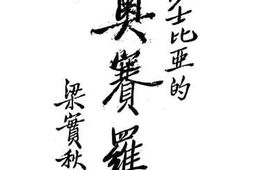 士比亞的
奧賽羅
梁實秋